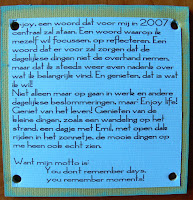 Enjoy, een woord dat voor mij in 2007
centraal zal staan. Een woord waarop ik
mezelf wil focussen, op reflecteren. Een
woord dat er voor zal zorgen dat de
dagelijkse dingen niet de overhand nemen,
maar dat ik steeds weer even nadenk over
wat ik belangrijk vind. En genieten, dat is wat
ik wil!
Niet alleen maar op gaan in werk en andere
dagelijkse beslommeringen, maar: Enjoy life!
Geniet van het leven! Genieten van de
kleine dingen, zoals een wandeling op het
strand, een dagje met Emil, met open dak
rijden in het zonnetje, de mooie dingen op
me heen ook echt zien.
Want mijn motto is:
You don't remember days,
you remember moments!